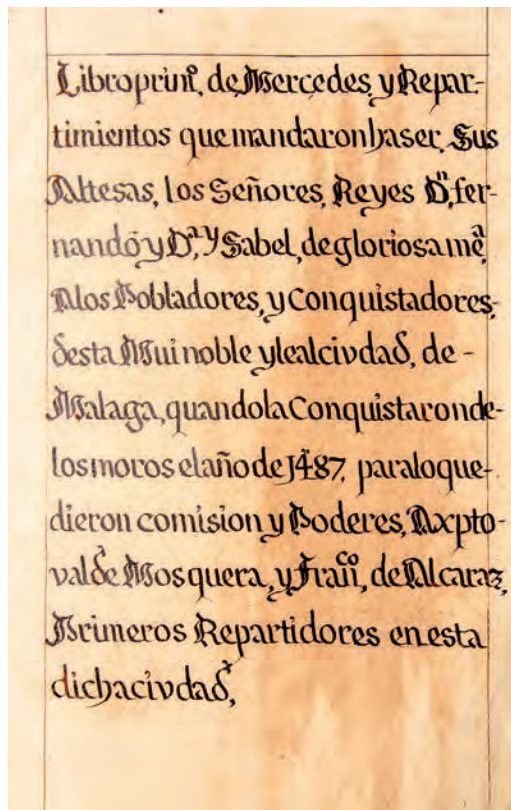 Libro primº, de Mercedes, y Repar-
timientos que mandaron haser, Sus
Altesas, los Señores, Reyes Dⁿ, fer-
nando y Dª, Ysabel, de gloriosa mēª,
A los Pobladores, y Conquistadores,
desta Mui noble y leal civdad, de -
Malaga, quando la Conquistaron de-
los moros el año de J487, para lo que-
dieron comision y Poderes, A xpto-
val de Mosquera, y Franᶜº, de Alcaraz,
Primeros Repartidores en esta
dicha civdad,